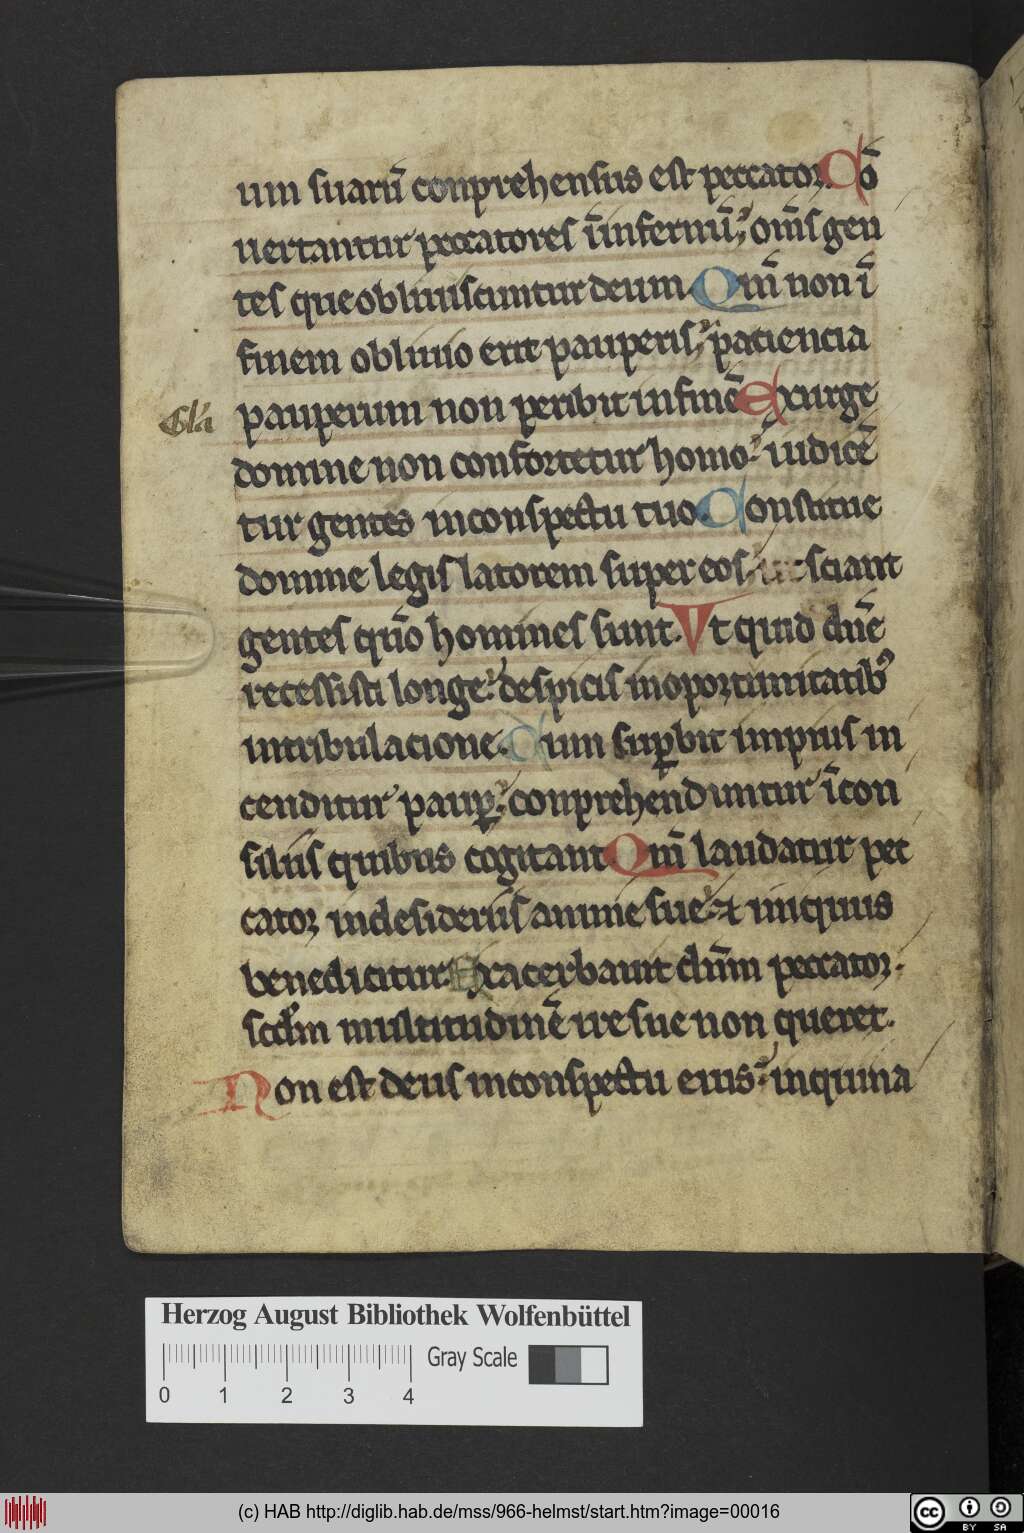 um suarū conprehensus est peccator. Cō
uertantur peccatores ī infernū; om̄s gen
tes que obliuiscuntur deum. Qm̄ non ī
finem obliuio erit pauperis; patiencia
Gla
pauperum non peribit in finē Exurge
domine non confortetur homo; iudicē
tur gentes in conspectu tuo. Constitue
domine legis latorem super eos; ut sciant
gentes qm̄o homines sunt. Vt quid dn̄e
recessisti longe; despicis in oportunitatib9
in tribulacione. Cum sup̱bit impius in
cenditur paup̱; conprehenduntur ī con
siliis quibus cogitant Qm̄ laudatur pec
cator in desideriis anime sue; ⁊ iniquus
benedicitur. Exacerbauit dn̄m peccator.
scd'm multitudinē ire sue non queret.
Non est deus in conspectu eius; inquina
Herzog August Bibliothek Wolfenbüttel
0 1 2 3 4
Gray Scale
(c) HAB http://diglib.hab.de/mss/966-helmst/start.htm?image=00016
cc BY SA